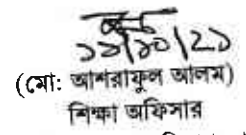 ১১/১০/২১
(মো: আশরাফুল আলম)
শিক্ষা অফিসার